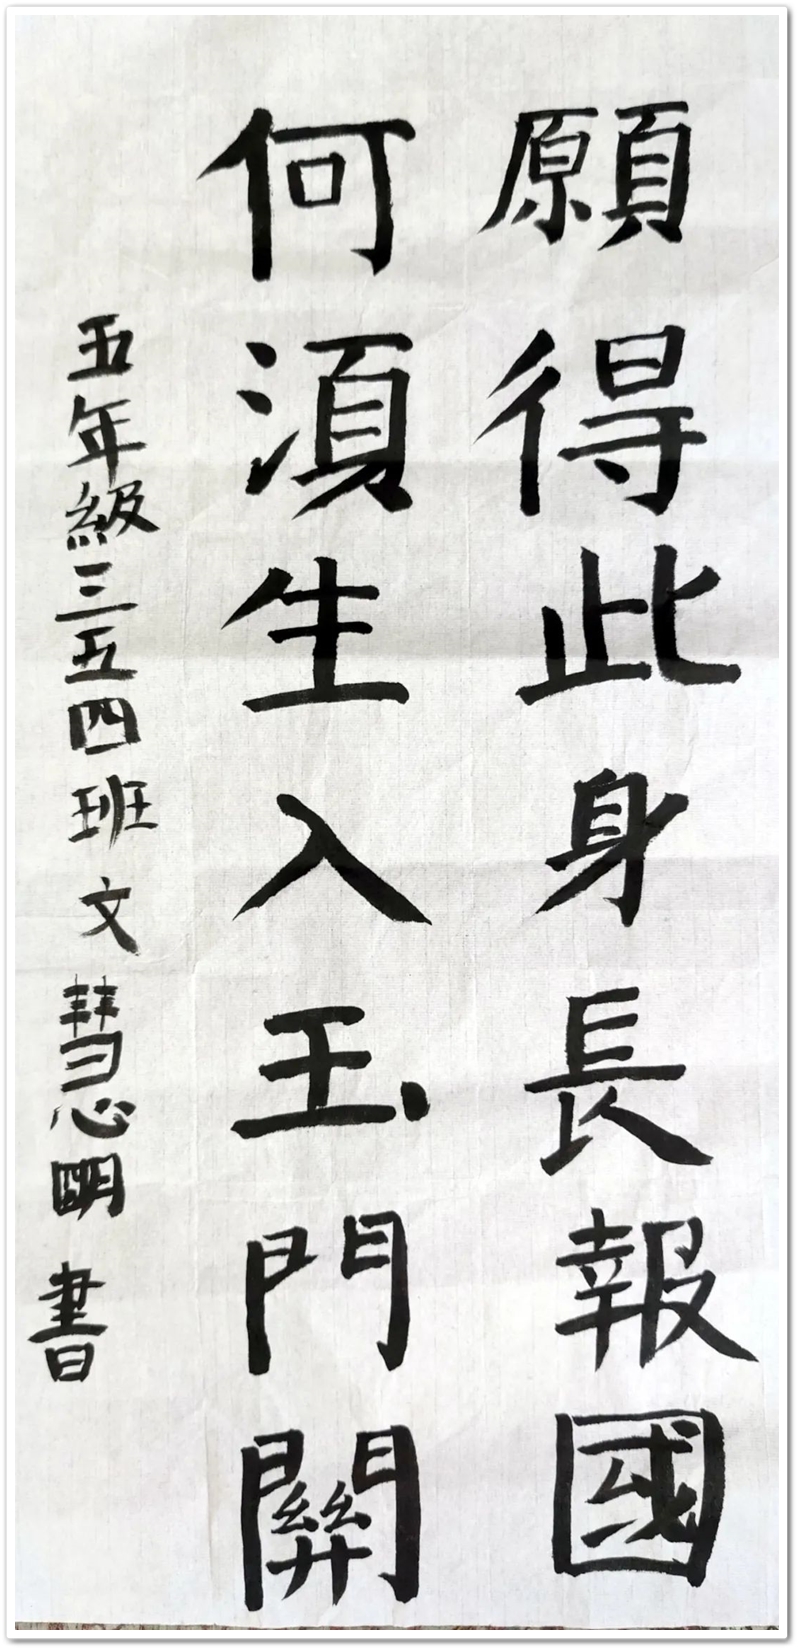 願得此身長報國
何須生入玉門關
五年級三五四班 文慧明 書